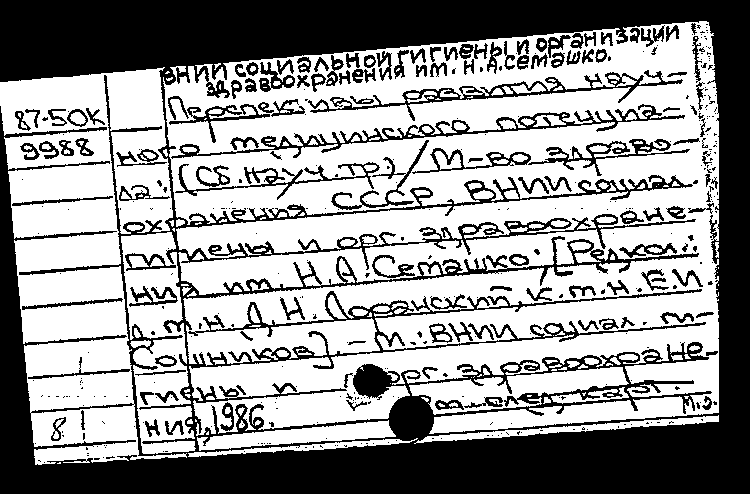 ВНИИ социальной гигиены и организации
здравоохранения им. Н.А.Семашко.
87-50К
9988
Перспективы развития науч-
ного медицинского потенциа-
ла: (Сб.науч.тр.) / М-во здраво-
охранения СССР, ВНИИ социал.
гигиены и орг. здравоохране-
ния им. Н.А.Семашко; [Редкол.:
д.м.н. Д.Н. Лоранский, к.м.н. Е.И.
Сошников]. - М.: ВНИИ социал. ги-
гиены и орг. здравоохране-
ния, 1986. см.след. карт.
8
М.З.